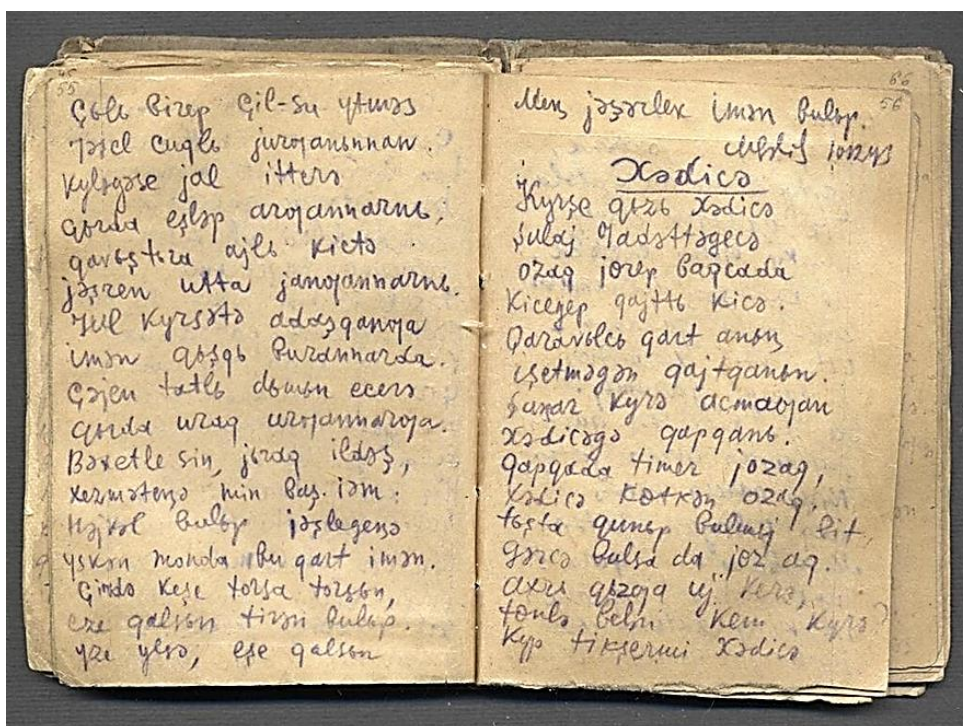 55
Çьlь birep çil-su ytməs
Jəşel cuqlь jurƣanьnnan.
Kyləgəse jal itterə
qьrda eşləp arƣannarnь,
qavьştьra ajlь kictə
jəşren utta janƣannarnь.
Jul kyrsətə adaşqanƣa
imən qьşqь burannarda.
Çəjen tatlь dьmьn ecerə
qьrda uraq urƣannarƣa.
Bəxetle sin, jьraq ildəş,
xezmətenə min baş iəm:
Həjkəl bulьp jəşlegenə
yskən monda bu qart imən.
Çirdə keşe torsa torsьn,
eze qalsьn tirən bulьp.
yze ylsə, eşe qalsьn
66
56
Meꞑ jəşərlek imən bulьp.
Xədicə
Kyrşe qьzь Xədicə
şulaj Jadəttəgecə
ozaq jɵrep baqcada
Kicegep qajttь kicə.
Qaravьlcь qart anьꞑ
işetməgən qajtqanьn.
şaꞑar kyrə acmaƣan
Xədicəgə qapqanь.
qapqada timer jozaq,
Xədicə kɵtkən ozaq.
tьşta qunьp bulmьj bit,
gərcə bulsa da joz aq.
axrь qьzƣa uj kerə,
tɵnlə belən kem kyrə
Kyp tikşermi Xədicə